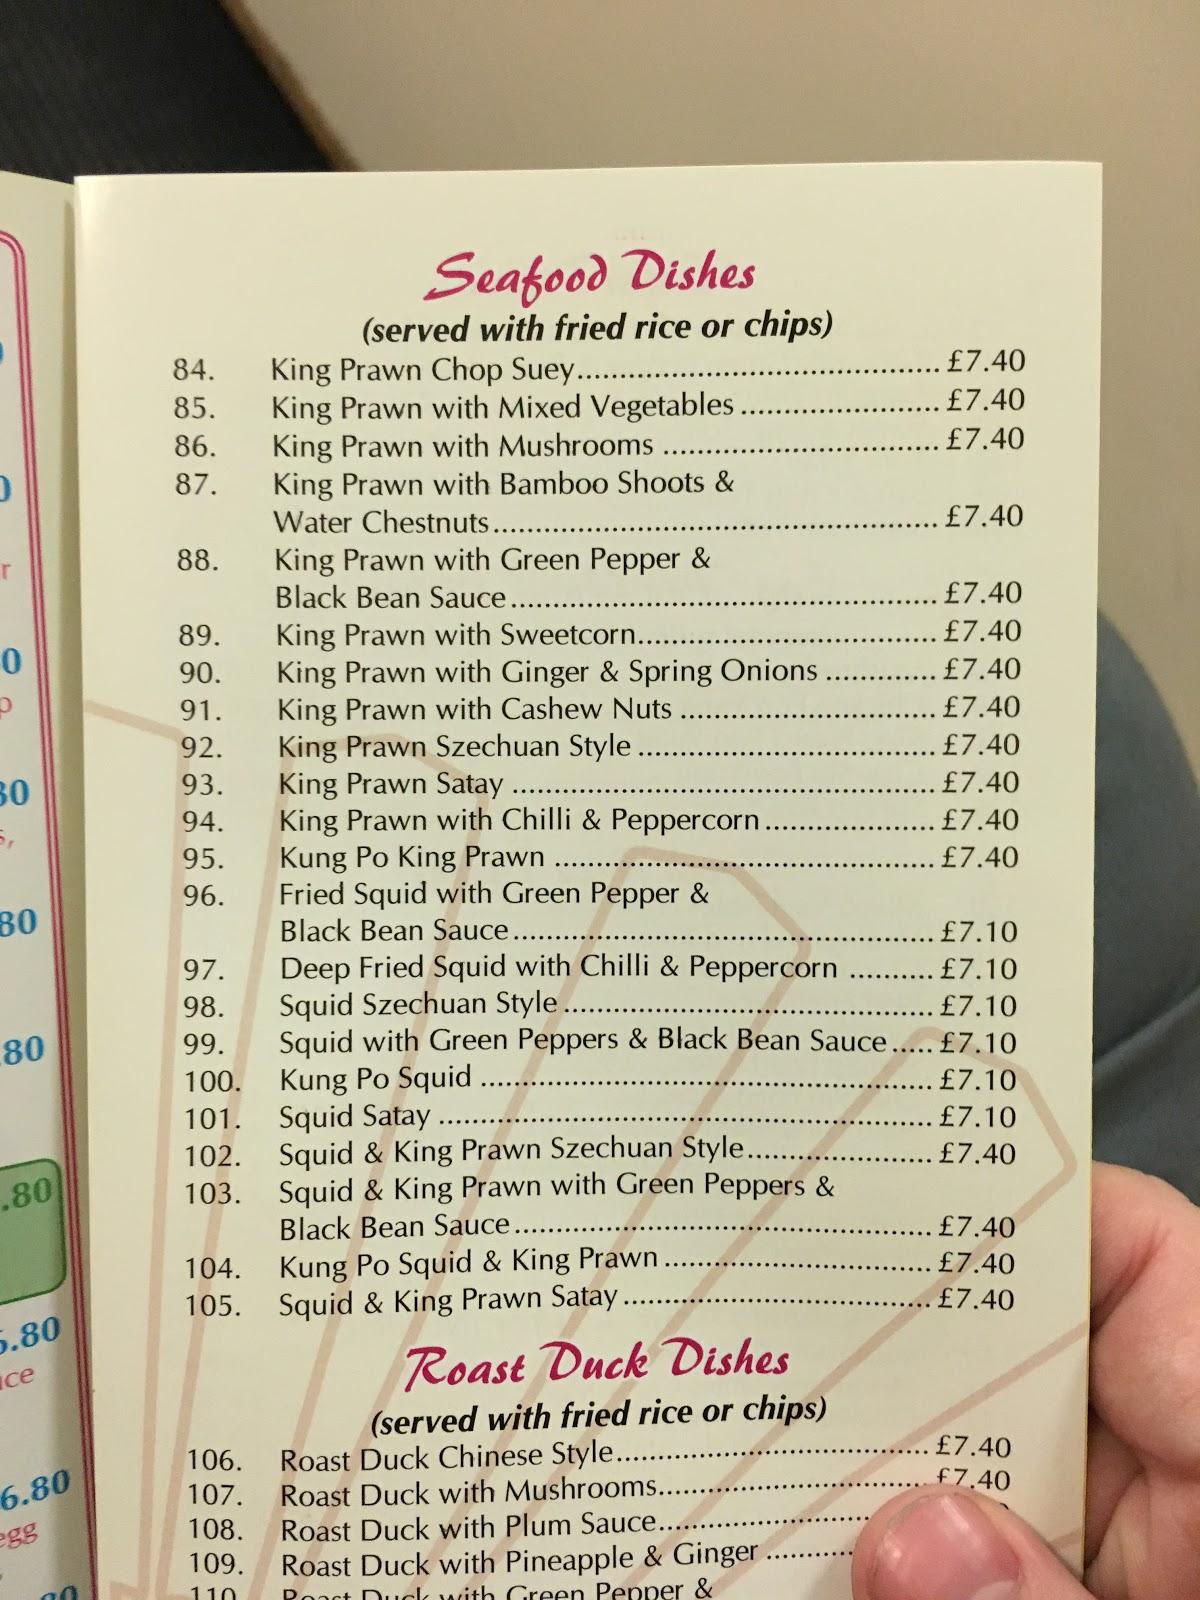 Seafood Dishes
(served with fried rice or chips)
84. King Prawn Chop Suey........................................ £7.40
85. King Prawn with Mixed Vegetables ...................... £7.40
86. King Prawn with Mushrooms .............................. £7.40
87. King Prawn with Bamboo Shoots &
Water Chestnuts................................................. £7.40
88. King Prawn with Green Pepper &
Black Bean Sauce............................................... £7.40
89. King Prawn with Sweetcorn................................. £7.40
90. King Prawn with Ginger & Spring Onions ............ £7.40
91. King Prawn with Cashew Nuts ............................ £7.40
92. King Prawn Szechuan Style ................................. £7.40
93. King Prawn Satay ............................................... £7.40
94. King Prawn with Chilli & Peppercorn................... £7.40
95. Kung Po King Prawn .......................................... £7.40
96. Fried Squid with Green Pepper &
Black Bean Sauce............................................... £7.10
97. Deep Fried Squid with Chilli & Peppercorn .......... £7.10
98. Squid Szechuan Style......................................... £7.10
99. Squid with Green Peppers & Black Bean Sauce..... £7.10
100. Kung Po Squid .................................................. £7.10
101. Squid Satay ....................................................... £7.10
102. Squid & King Prawn Szechuan Style.................... £7.40
103. Squid & King Prawn with Green Peppers &
Black Bean Sauce............................................... £7.40
104. Kung Po Squid & King Prawn ............................. £7.40
105. Squid & King Prawn Satay.................................. £7.40
Roast Duck Dishes
(served with fried rice or chips)
106. Roast Duck Chinese Style................................... £7.40
107. Roast Duck with Mushrooms.............................. £7.40
108. Roast Duck with Plum Sauce.......................
109. Roast Duck with Pineapple & Ginger ..........
110. Roast Duck with Green Pepper &